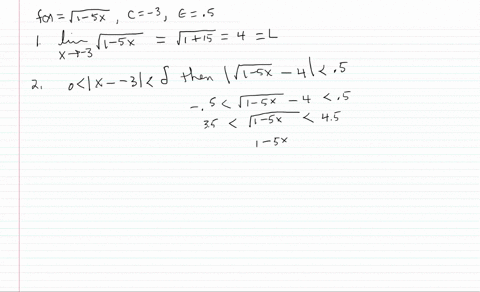 f(x) = √1-5x , c = -3, ε = .5
1. lim x→-3 √1-5x = √1+15 = 4 = L
2. 0<|x - -3|<δ then |√1-5x - 4| < .5
-.5 < √1-5x - 4 < .5
3.5 < √1-5x < 4.5
1-5x